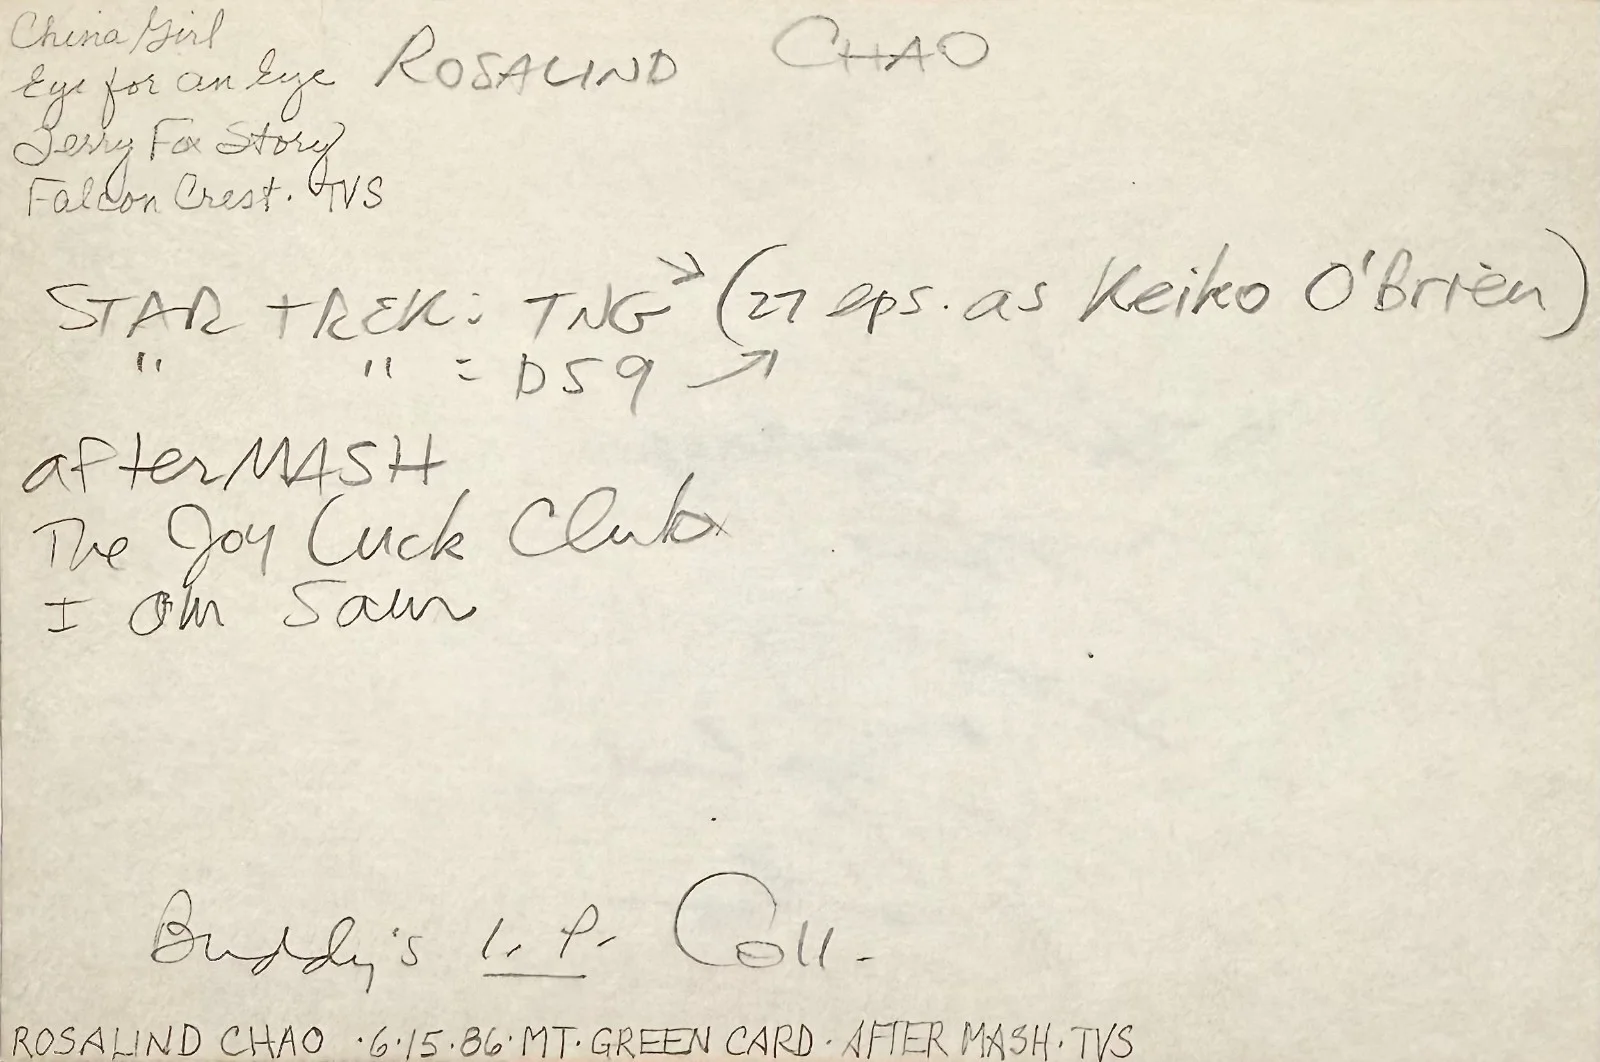 China Girl
Eye for an Eye
Terry Fox Story
Falcon Crest. TVS
ROSALIND CHAO
STAR TREK: TNG → (27 eps. as Keiko O'Brien)
" " = DS9 ↗
afterMASH
The Joy Luck Club
I am Sam
Buddy's I.P. Coll.
ROSALIND CHAO · 6·15·86· MT· GREEN CARD· AFTER MASH· TVS